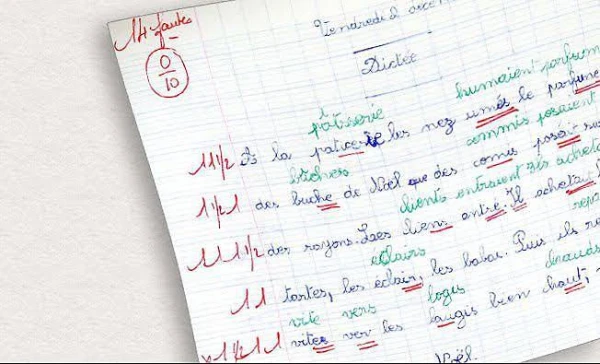 14 fautes
0
10
Vendredi 2 déce
Dictée
pâtisserie humaient parfum
11 1/2 A la les nez umés le parfums
bûches commis posaient
1 1/2 1 des buche de Noël que des comis posait sur
clients entraient Ils acheta
1 1 1 1/2 des rayons. Les liens antre. Il achetait
éclairs
1 1 tartes, les éclair, les babas. Puis ils re
vite vers logis chauds
1 1/2 1 1 vites ver les laugis bien chaut,
Noël.